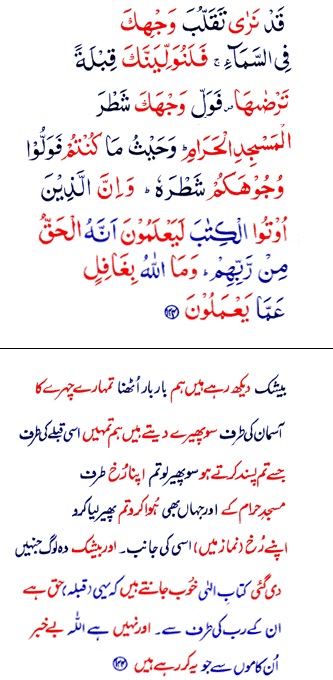 قَدْ نَرٰى تَقَلُّبَ وَجْهِكَ
فِى السَّمَآءِ ۚ فَلَنُوَلِّيَنَّكَ قِبْلَةً
تَرْضٰىهَا ۪ فَوَلِّ وَجْهَكَ شَطْرَ
الْمَسْجِدِ الْحَرَامِ ؕ وَحَيْثُ مَا كُنْتُمْ فَوَلُّوْا
وُجُوْهَكُمْ شَطْرَهٗ ؕ وَاِنَّ الَّذِيْنَ
اُوْتُوا الْكِتٰبَ لَيَعْلَمُوْنَ اَنَّهُ الْحَقُّ
مِنْ رَّبِّهِمْ ؕ وَمَا اللّٰهُ بِغَافِلٍ
عَمَّا يَعْمَلُوْنَ ﴿۱۴۴﴾
بیشک دیکھ رہے ہیں ہم بار بار اُٹھنا تمہارے چہرے کا
آسمان کی طرف سو پھیرے دیتے ہیں ہم تمہیں اسی قبلے کی طرف
جسے تم پسند کرتے ہو سو پھیر لو تم اپنا رُخ طرف
مسجدِ حرام کے اور جہاں بھی ہُوا کرو تم پھیر لیا کرو
اپنے رُخ (نماز میں) اسی کی جانب۔ اور بیشک وہ لوگ جنہیں
دی گئی کتابِ الہٰی خُوب جانتے ہیں کہ یہی (قبلہ) حق ہے
ان کے رب کی طرف سے۔ اور نہیں ہے اللہ بے خبر
اُن کاموں سے جو یہ کر رہے ہیں ﴿۱۴۴﴾